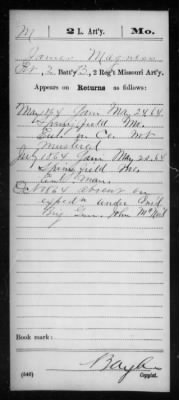 M | 2 L. Art'y. | Mo.
James Magness
Pvt, 2 Batt'y B, 2 Reg't Missouri Art'y.
Appears on Returns as follows:
May 1864 Gain May 24 64
Springfield Mo.
Enl. in Co. not
mustered
July 1864 Gain May 24 64
Springfield Mo.
Enlistment.
Oct 1864 absent on
exped'n under Com'd
Brig Gen. John McNeil
Book mark:
(546)
Copyist.